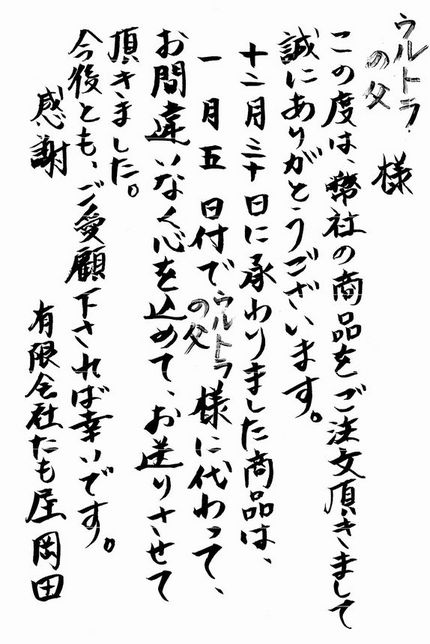 ウルトラの父 様
この度は、幣社の商品をご注文頂きまして
誠にありがとうございます。
十二月三十日に承わりました商品は、
一月五日付でウルトラの父様に代わって、
お間違いなく心を込めて、お送りさせて
頂きました。
今後とも、ご愛顧下されば幸いです。
感謝
有限会社たも屋 岡田